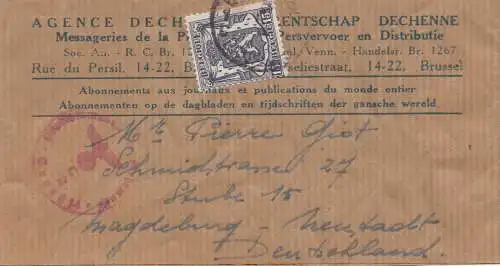 AGENCE DECH RENTSCHAP DECHENNE
Messageries de la P Persvervoer en Distributie
Soc. An. - R. C. Br. 12 Venn. - Handelsr. Br. 1267
Rue du Persil, 14-22, B seliestraat, 14-22, Brussel
BELGIQUE BELGIE
Abonnements aux journaux et publications du monde entier
Abonnementen op de dagbladen en tijdschriften der gansche wereld
Mr Pierre Giot
Schmidtstrasse 27
Stube 15
Magdeburg - Neustadt
Deutschland.